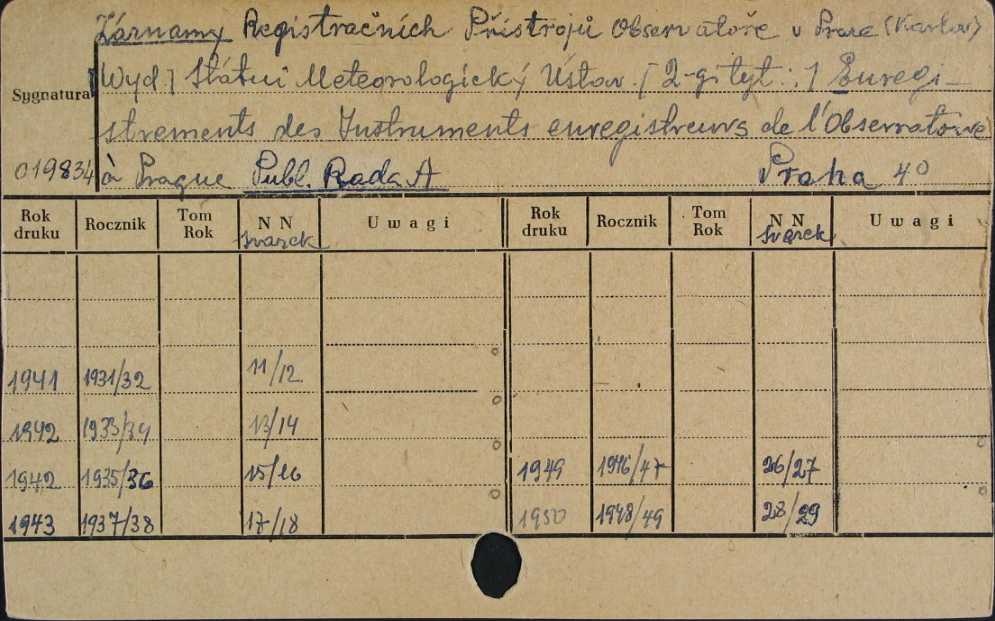 Záznamy Registračních Přístrojů Observatoře v Praze (Karlov)
[Wyd.] Státní Meteorologický Ústav. [2-gi tyt.:] Enregi-
Sygnatura
strements des Instruments enregistreurs de l'Observatoire
019834 à Prague Publ. Řada A Praha 4°
Rok druku Rocznik Tom Rok N N Svazek Uwagi Rok druku Rocznik Tom Rok N N Svazek Uwagi
1941 1931/32 11/12
1942 1933/34 13/14
1942 1935/36 15/16 1949 1946/47 26/27
1943 1937/38 17/18 1950 1948/49 28/29